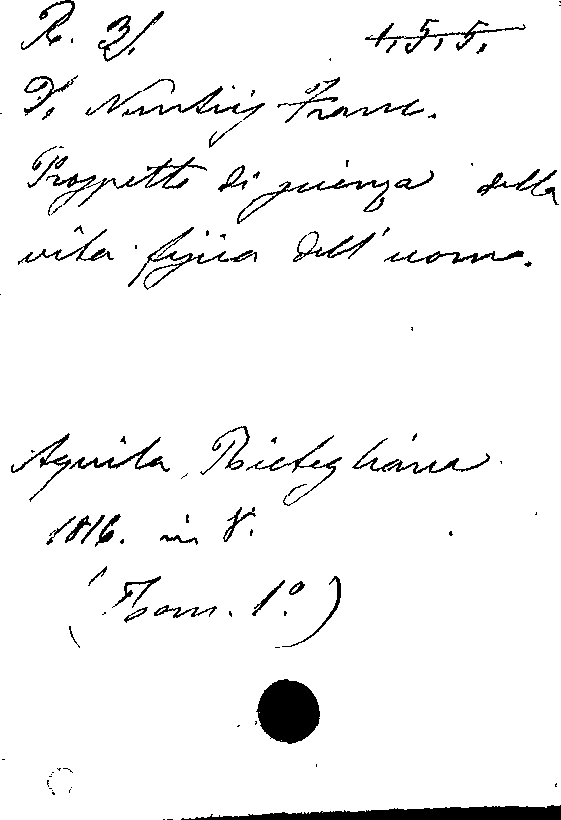 R. 3/. 1.5.5.
D. Franc.
Prospetto di scienza della
vita fisica dell'uomo.
Aquila, Rietegliana
1816. in 8.
(Tom. 1º.)